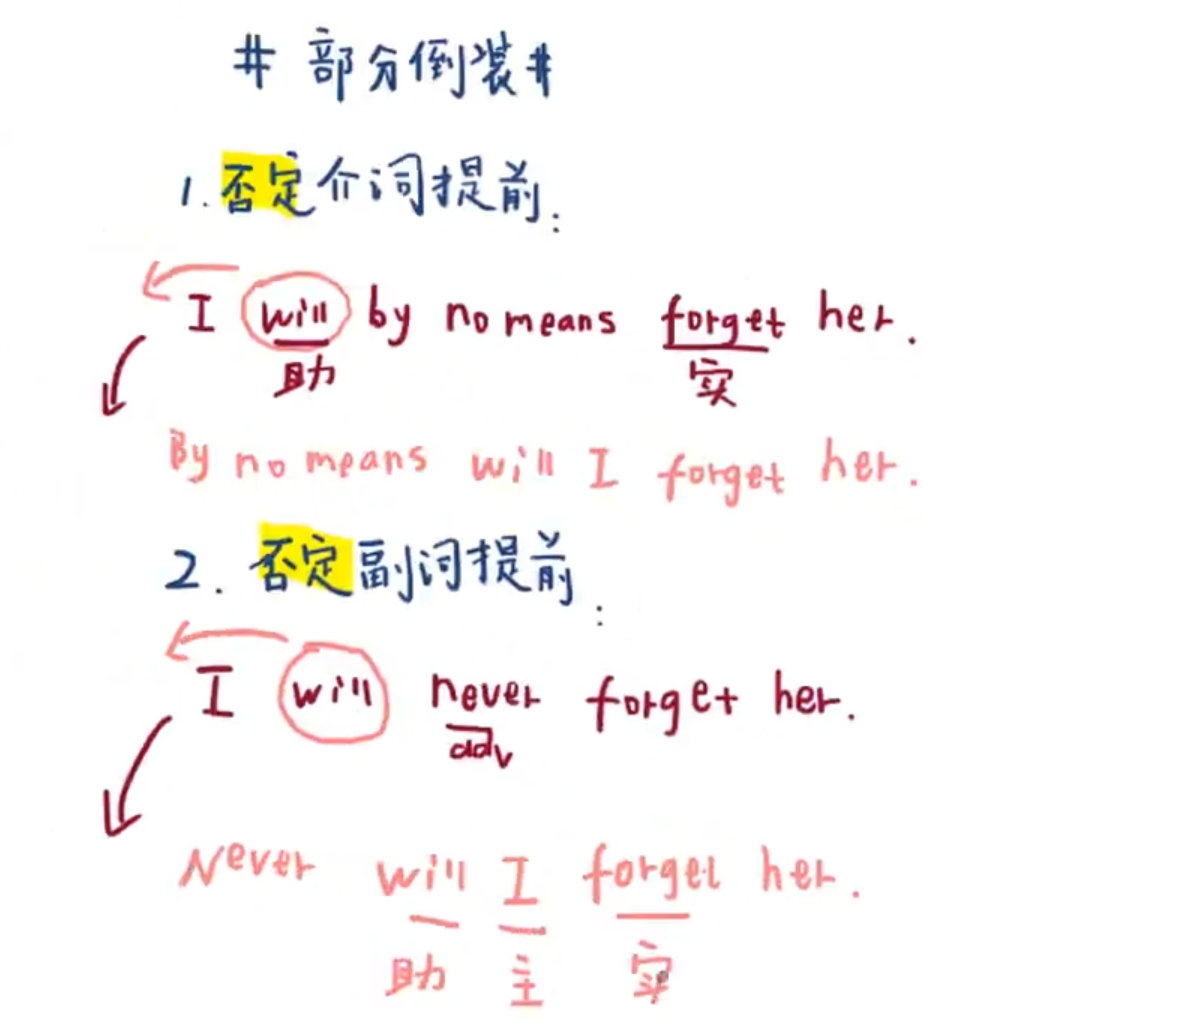 # 部分倒装#
1. 否定介词提前:
I will by no means forget her.
助 实
By no means will I forget her.
2. 否定副词提前:
I will never forget her.
adv
Never will I forget her.
助 主 实